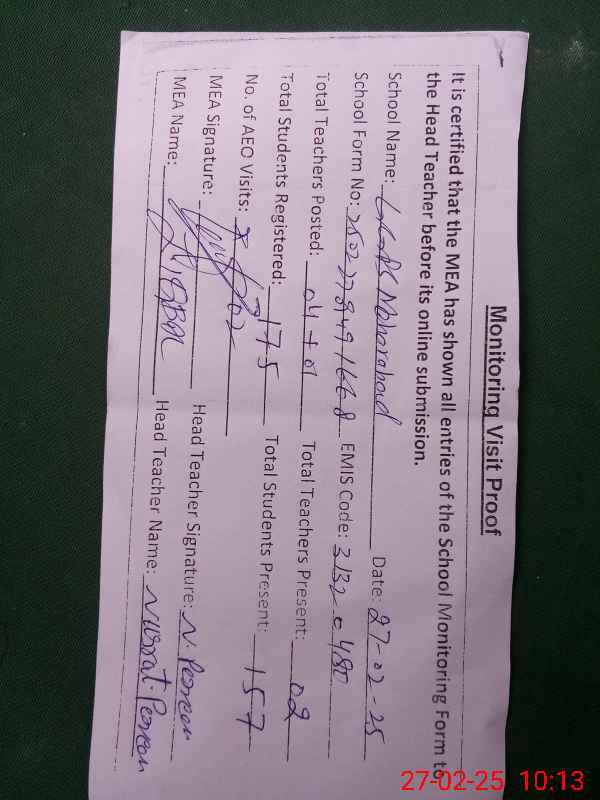 Monitoring Visit Proof
It is certified that the MEA has shown all entries of the School Monitoring Form to,
the Head Teacher before its online submission.
School Name: Moharabad Date: 27-02-25
School Form No: EMIS Code: 31320480
Total Teachers Posted: 04+01 Total Teachers Present: 02
Total Students Registered: 175 Total Students Present: 157
No. of AEO Visits: 02
MEA Signature: Head Teacher Signature: N. Parveen
MEA Name: Head Teacher Name: Nusrat Parveen
27-02-25 10:13